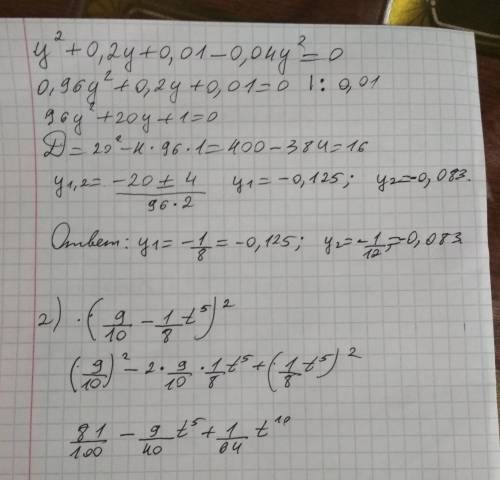 y² + 0,2y + 0,01 - 0,04y² = 0
0,96y² + 0,2y + 0,01 = 0 |: 0,01
96y² + 20y + 1 = 0
D = 20² - 4 · 96 · 1 = 400 - 384 = 16
y1,2 = (-20 ± 4)/(96 · 2) y1 = -0,125; y2 = -0,083.
Ответ: y1 = -1/8 = -0,125; y2 = -1/12 = -0,083
2) · (9/10 - 1/8 t⁵)²
(9/10)² - 2 · 9/10 · 1/8 t⁵ + (1/8 t⁵)²
81/100 - 9/40 t⁵ + 1/64 t¹⁰